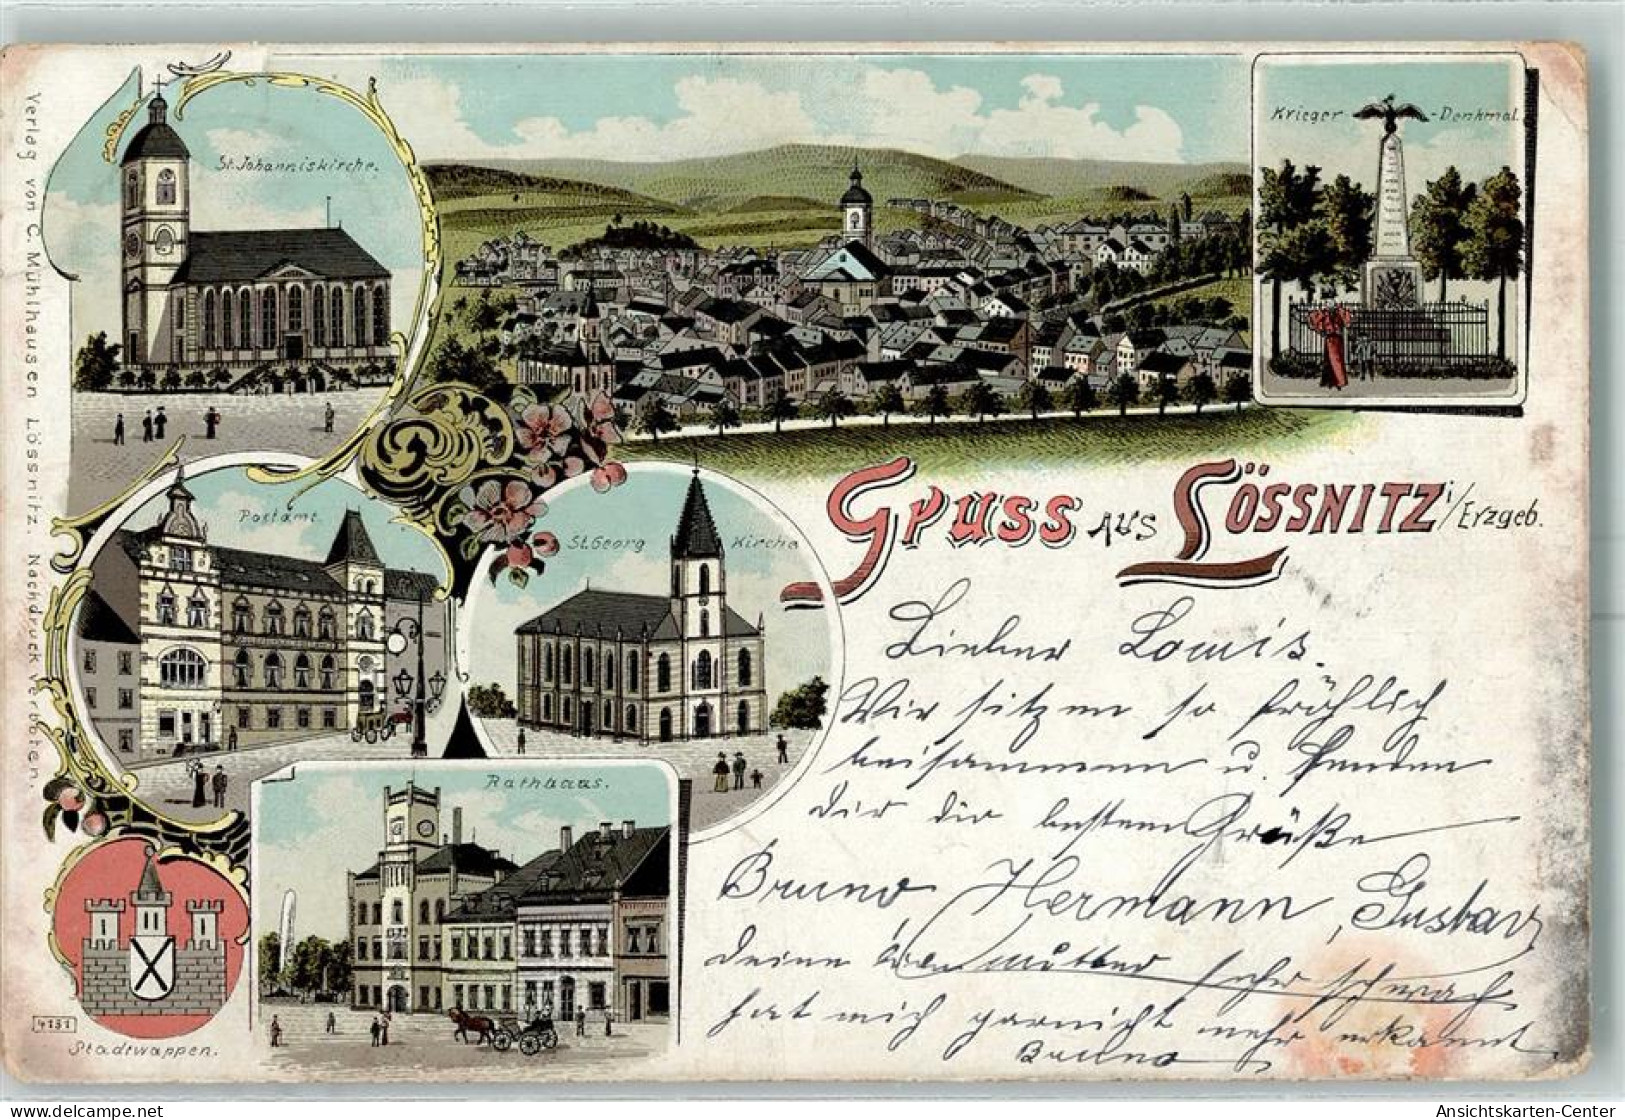 Verlag von C. Mühlhausen Lössnitz. Nachdruck verboten.
St. Johanniskirche.
Krieger-Denkmal.
Postamt.
St. Georg Kirche
Gruss aus Lössnitz i/Erzgeb.
Rathhaus.
Stadtwappen.
4151
Lieber Louis.
Wir sitzen so fröhlich
beisammen u. senden
dir die besten Grüße
Bruno, Hermann, Gustav
deine Mutter sehr schwach
hat mich garnicht mehr erkannt
Bruno
Ansichtskarten-Center
https://www.delcampe.net